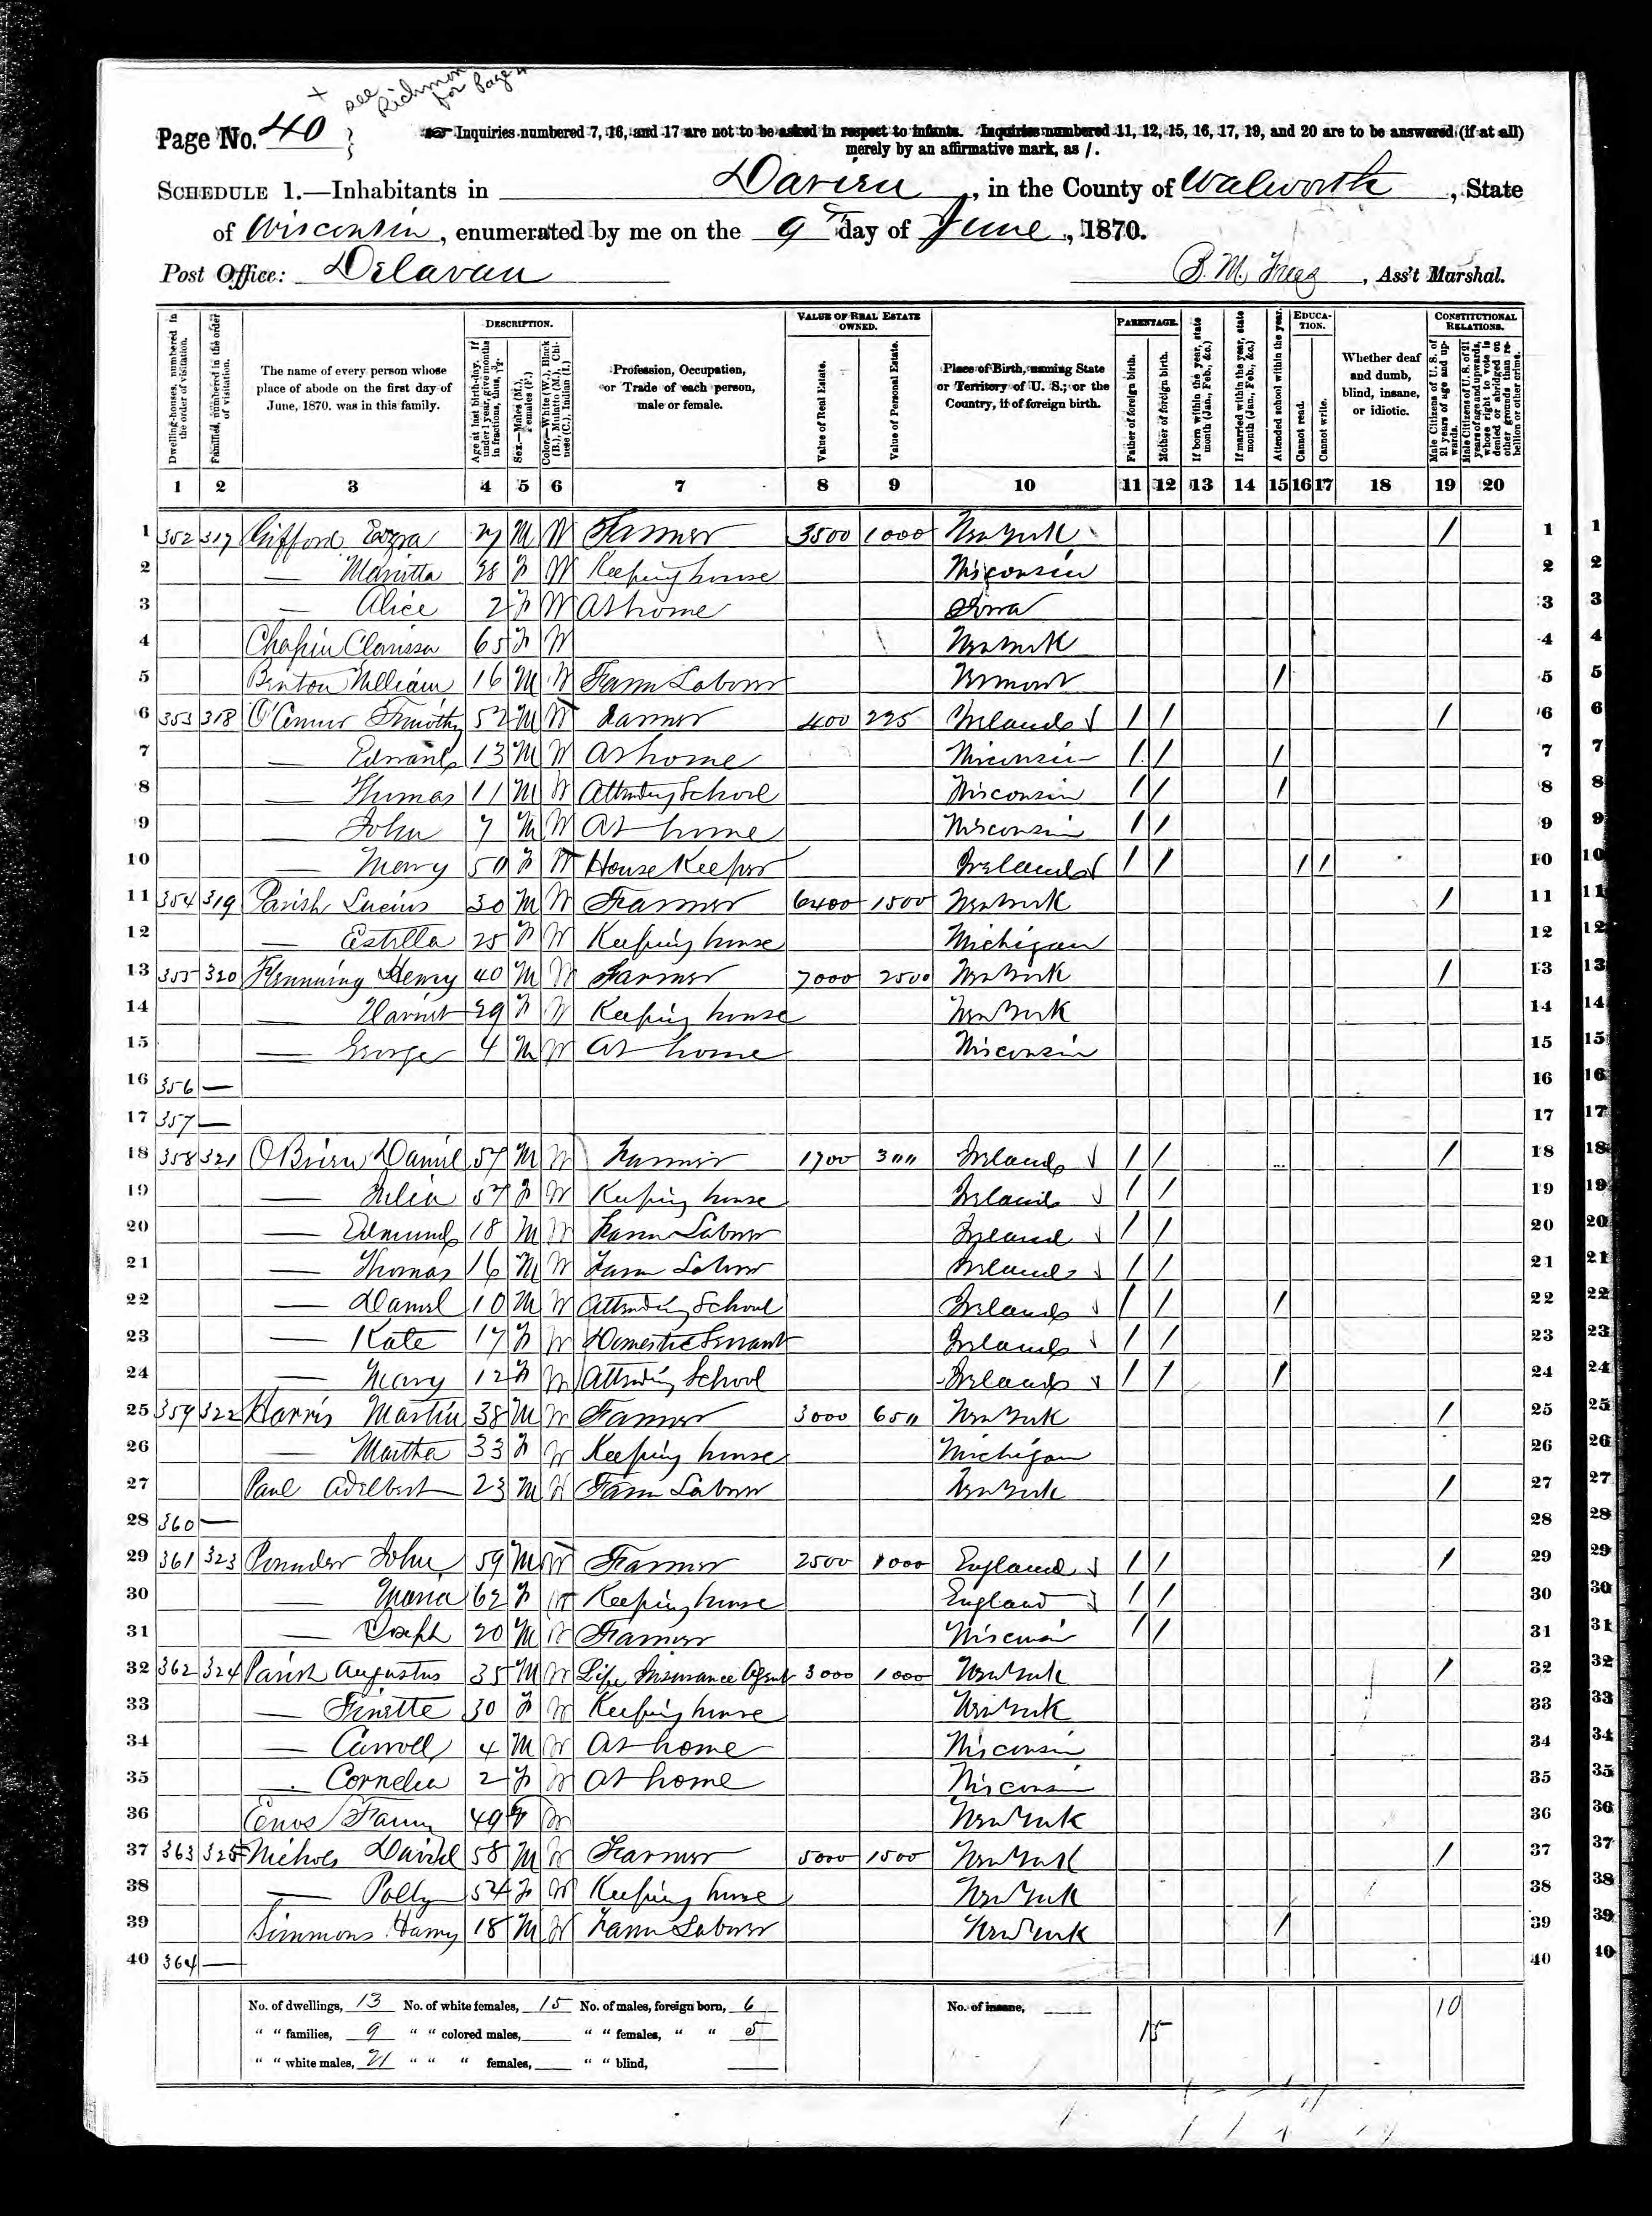 + see Richmon
for Page 4
Page No. 40 }
Inquiries numbered 7, 16, and 17 are not to be asked in respect to infants. Inquiries numbered 11, 12, 15, 16, 17, 19, and 20 are to be answered (if at all)
merely by an affirmative mark, as /.
SCHEDULE 1.—Inhabitants in Darien, in the County of Walworth, State
of Wisconsin, enumerated by me on the 9th day of June, 1870.
Post Office: Delavan B. M. Frees, Ass't Marshal.
Dwelling-houses, numbered in the order of visitation.
Families, numbered in the order of visitation.
The name of every person whose place of abode on the first day of June, 1870, was in this family.
DESCRIPTION.
Age at last birth-day. If under 1 year, give months in fractions, thus, 3/12.
Sex.—Males (M.), Females (F.)
Color.—White (W.), Black (B.), Mulatto (M.), Chinese (C.), Indian (I.)
Profession, Occupation, or Trade of each person, male or female.
VALUE OF REAL ESTATE OWNED.
Value of Real Estate.
Value of Personal Estate.
Place of Birth, naming State or Territory of U. S.; or the Country, if of foreign birth.
PARENTAGE.
Father of foreign birth.
Mother of foreign birth.
If born within the year, state month (Jan., Feb., &c.)
If married within the year, state month (Jan., Feb., &c.)
Attended school within the year.
EDUCATION.
Cannot read.
Cannot write.
Whether deaf and dumb, blind, insane, or idiotic.
CONSTITUTIONAL RELATIONS.
Male Citizens of U. S. of 21 years of age and upwards.
Male Citizens of U. S. of 21 years of age and upwards, whose right to vote is denied or abridged on other grounds than rebellion or other crime.
1 2 3 4 5 6 7 8 9 10 11 12 13 14 15 16 17 18 19 20
1 352 317 Gifford Ezra M W Farmer 3500 1000 New York / 1 1
2 — Maritta 28 F W Keeping house Wisconsin 2 2
3 — Alice 2 F W At home Iowa 3 3
4 Chapin Clarissa 65 F W New York 4 4
5 Benton William 16 M W Farm Laborer Vermont / 5 5
6 353 318 O'Connor Timothy 52 M W Farmer 400 225 Ireland / / / 6 6
7 — Edward 13 M W At home Wisconsin / / / 7 7
8 — Thomas 11 M W Attending School Wisconsin / / / 8 8
9 — John 7 M W At home Wisconsin / / 9 9
10 — Mary 50 F W House Keeper Ireland / / / / 10 10
11 354 319 Parish Lucius 30 M W Farmer 6400 1500 New York / 11 11
12 — Estella 25 F W Keeping house Michigan 12 12
13 355 320 Flemming Henry 40 M W Farmer 7000 2500 New York / 13 13
14 — Harriet 29 F W Keeping house New York 14 14
15 — George 4 M W At home Wisconsin 15 15
16 356 — 16 16
17 357 — 17 17
18 358 321 OBrien Daniel 57 M W Farmer 1700 300 Ireland / / / 18 18
19 — Julia 57 F W Keeping house Ireland / / 19 19
20 — Edmund 18 M W Farm Laborer Ireland / / 20 20
21 — Thomas 16 M W Farm Laborer Ireland / / 21 21
22 — Daniel 10 M W Attending School Ireland / / / 22 22
23 — Kate 17 F W Domestic Servant Ireland / / 23 23
24 — Mary 12 F W Attending School Ireland / / / 24 24
25 359 322 Harris Martin 38 M W Farmer 3000 650 New York / 25 25
26 — Martha 33 F W Keeping house Michigan 26 26
27 Paul Adelbert 23 M W Farm Laborer New York / 27 27
28 360 — 28 28
29 361 323 Pounder John 59 M W Farmer 2500 1000 England / / / 29 29
30 — Maria 62 F W Keeping house England / / 30 30
31 — Joseph 20 M W Farmer Wisconsin / / 31 31
32 362 324 Parish Augustus 35 M W Life Insurance Agent 3000 1000 New York / 32 32
33 — Finette 30 F W Keeping house New York 33 33
34 — Carroll 4 M W At home Wisconsin 34 34
35 — Cornelia 2 F W At home Wisconsin 35 35
36 Enos Fanny 49 F W New York 36 36
37 363 325 Nichols David 58 M W Farmer 5000 1500 New York / 37 37
38 — Polly 54 F W Keeping house New York 38 38
39 Simmons Harry 18 M W Farm Laborer New York / 39 39
40 364 — 40 40
No. of dwellings, 13 No. of white females, 15 No. of males, foreign born, 6 No. of insane, 10
" " families, 9 " " colored males, " " females, " " 5 15
" " white males, 21 " " " females, " " blind,